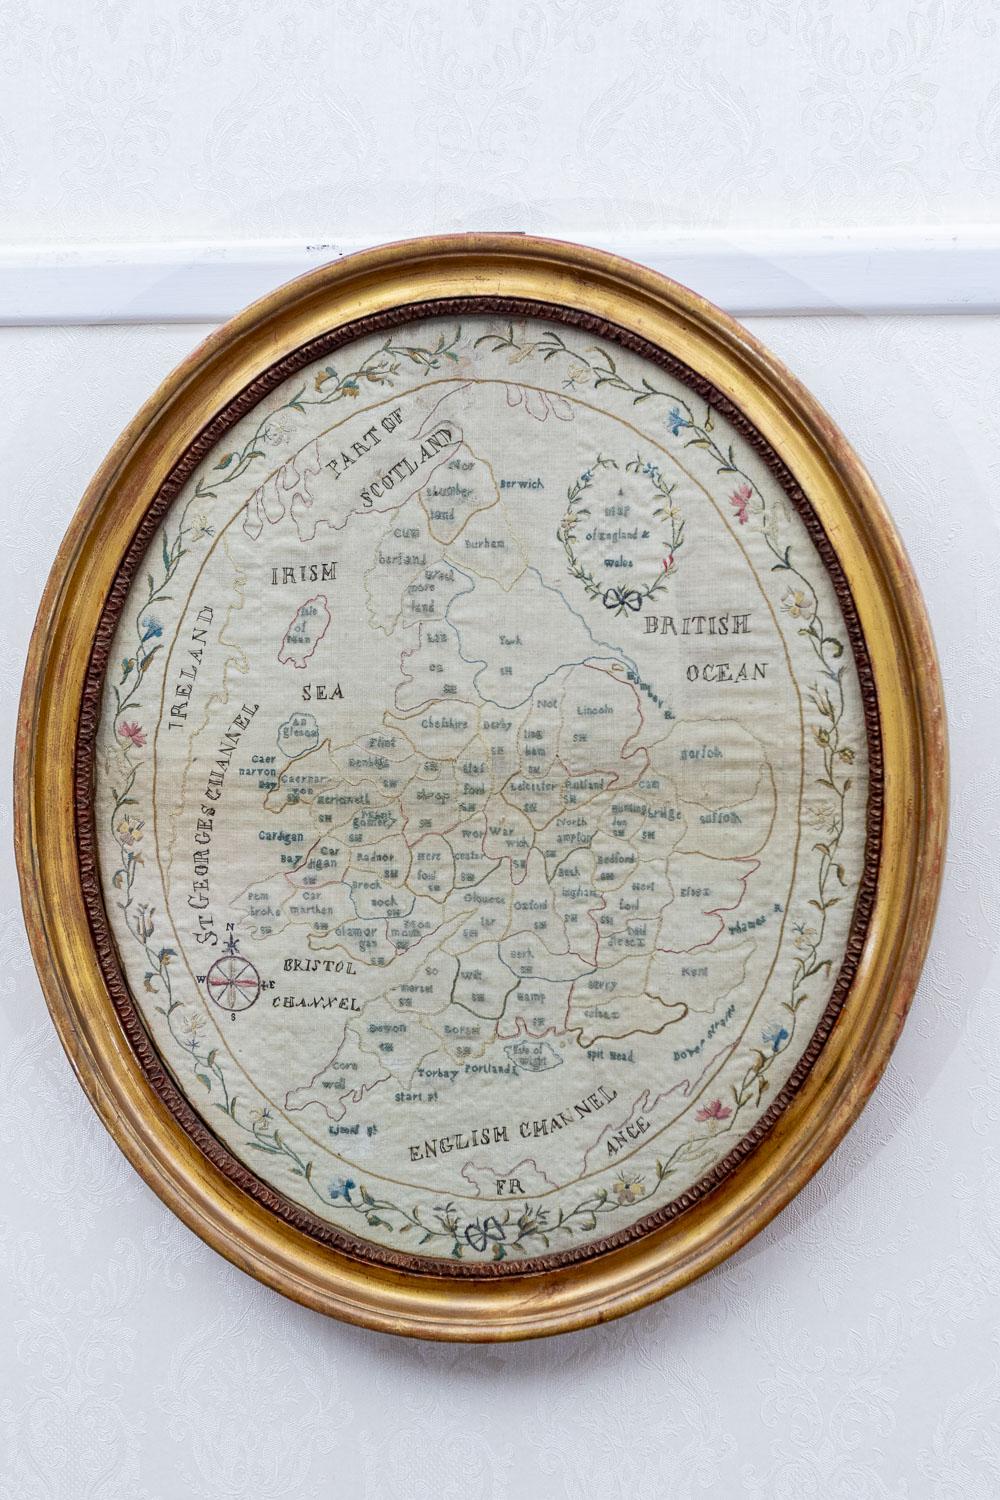 PART OF
SCOTLAND
Nor
thumber
land
Berwick
A
MAP
of England &
Wales
Cum
berland
Durham
West
more
land
IRISH
Isle
of
Man
SEA
IRELAND
ST GEORGES CHANNEL
BRITISH
OCEAN
Lan
York
SH
SH
Humber R.
An
glesea
Cheshire
SH
Derby
SH
Not
ting
ham
SH
Lincoln
SH
norfolk
Caer
narvon
Bay
Caernar
von
Flint
Denbigh
SH
Merioneth
SH
Mont
gomery
SH
Shrop
SH
Staf
ford
SH
Leicester
SH
Rutland
SH
Cam
bridge
SH
Hunting
don
SH
suffolk
Cardigan
Bay
Car
digan
SH
Radnor
SH
Here
ford
SH
Wor
cester
SH
War
wich
SH
North
ampton
SH
Bedford
SH
Pem
broke
SH
Car
marthen
Breck
nock
SH
Glouces
ter
Oxford
SH
Buck
ingham
SH
Hert
ford
SH
Essex
Glamor
gan
SH
Mon
mouth
SH
Mid
dlesex
Thames R
N
W
E
S
BRISTOL
CHANNEL
So
merset
SH
Wilt
SH
Berk
SH
Hamp
SH
Surry
Kent
Devon
SH
Dorset
SH
Isle of
Wight
Spit Head
Dover Straits
Corn
wall
Torbay
Portland I
Start Pt
ENGLISH CHANNEL
FR
ANCE